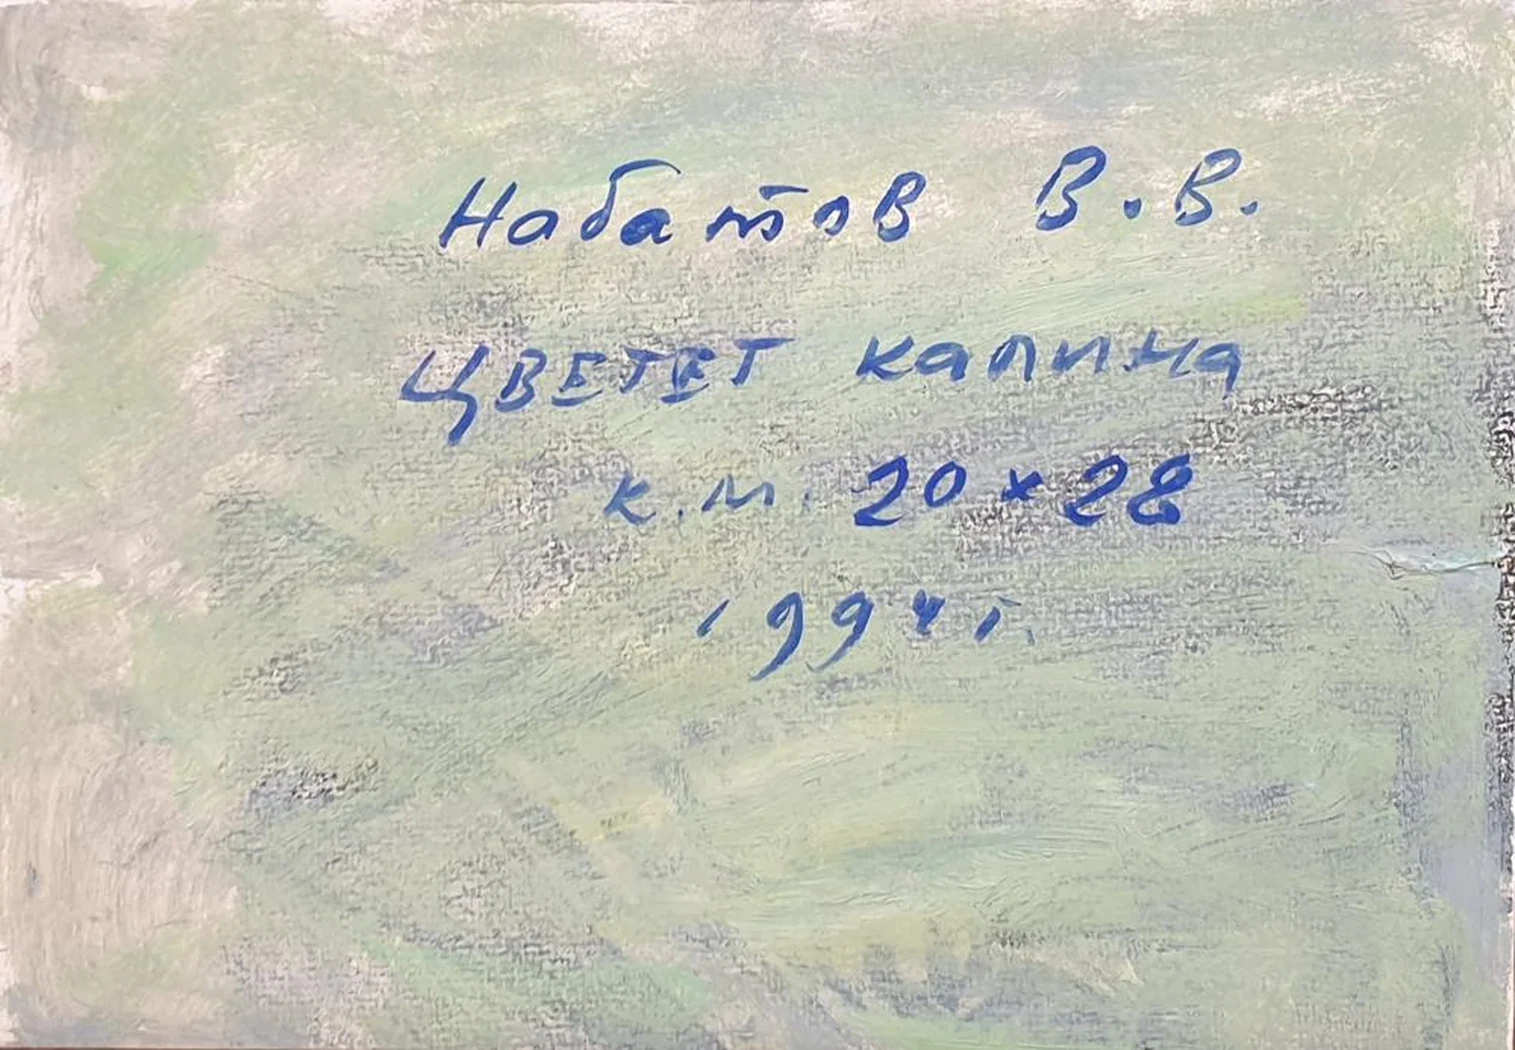 Набатов В.В.
Цветет калина
к.м. 20×28
1994г.